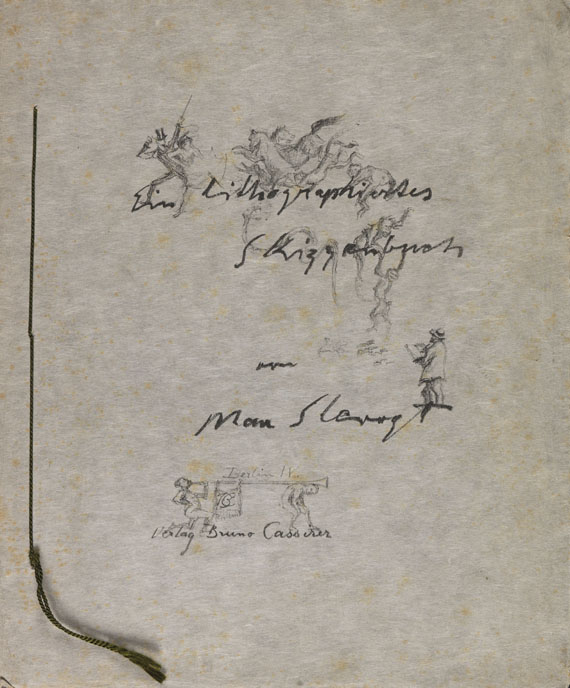 Ein lithographiertes
Skizzenbuch
von
Max Slevogt
Berlin W.
Verlag Bruno Cassirer